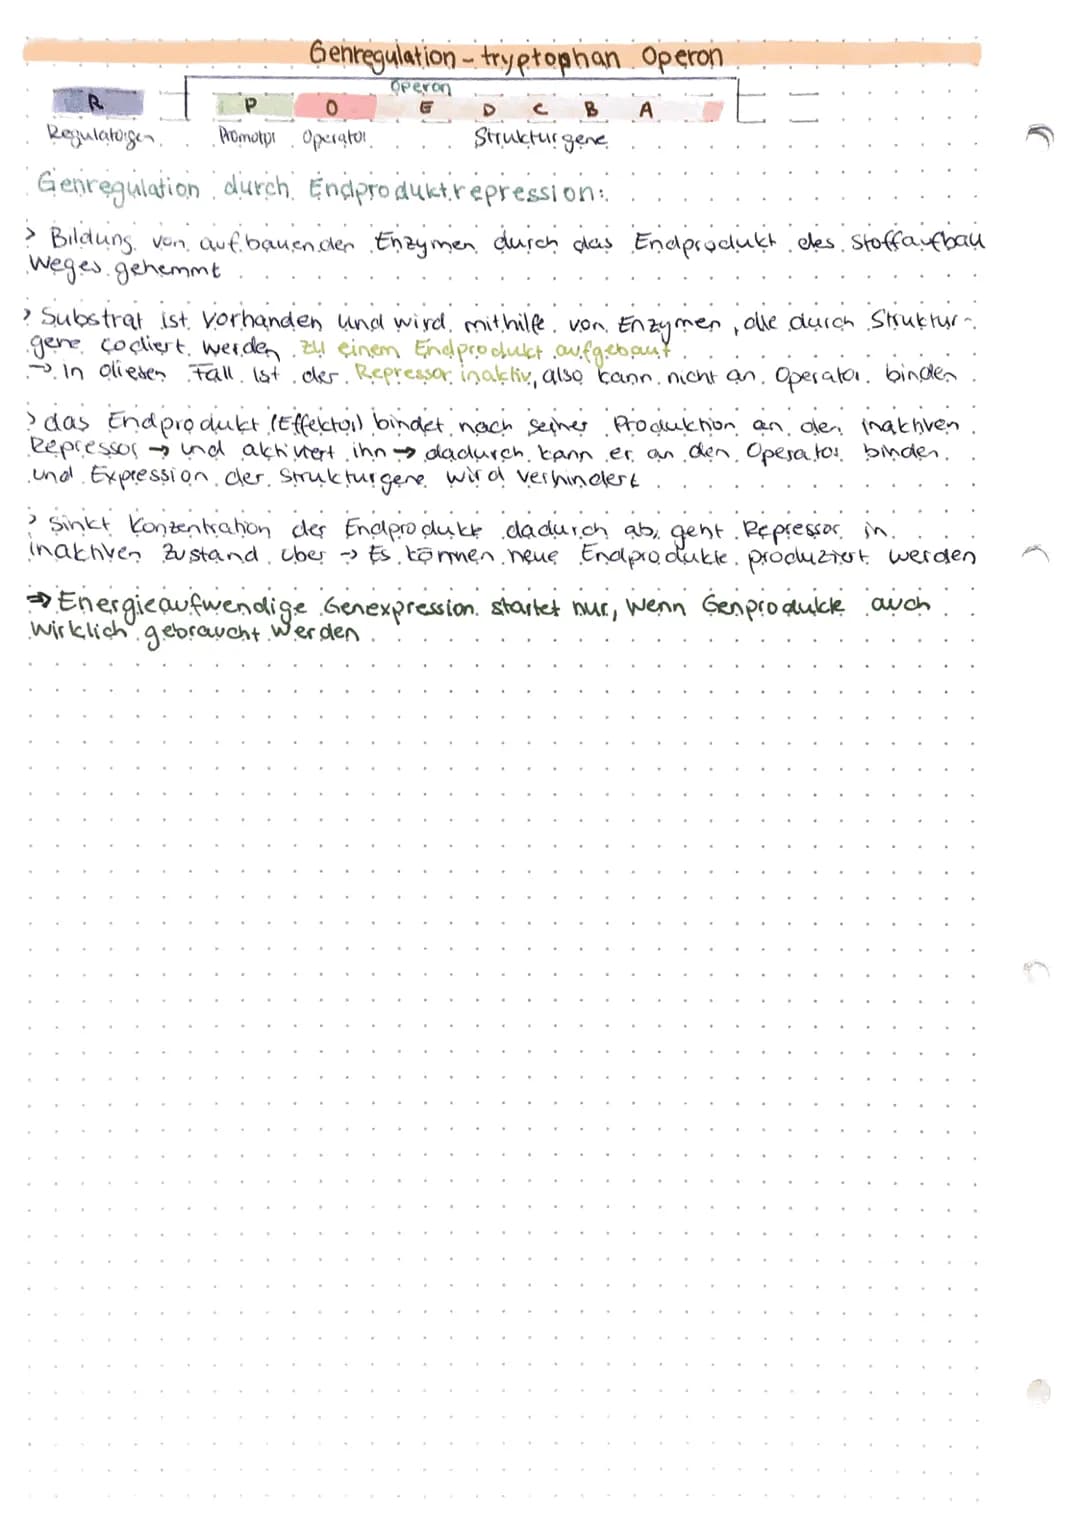 Genregulation - tryptophan Operon
Operon
R P O E D C B A
Regulatorgen Promotor Operator Strukturgene
Genregulation durch Endproduktrepression:
> Bildung von aufbauenden Enzymen durch das Endprodukt des Stoffaufbau
weges gehemmt
> Substrat ist vorhanden und wird mithilfe von Enzymen, die durch Struktur-
gene codiert werden zu einem Endprodukt aufgebaut
→ In diesen Fall ist der Repressor inaktiv, also kann nicht an Operator binden
> das Endprodukt (Effektor) bindet nach seiner Produktion an den inaktiven
Repressor → und aktiviert ihn → dadurch kann er an den Operator binden
und Expression der Strukturgene wird verhindert
> Sinkt Konzentration der Endprodukte dadurch ab, geht Repressor in
inaktiven Zustand über → Es können neue Endprodukte produziert werden
⇒ Energieaufwendige Genexpression startet nur, wenn Genprodukte auch
wirklich gebraucht werden